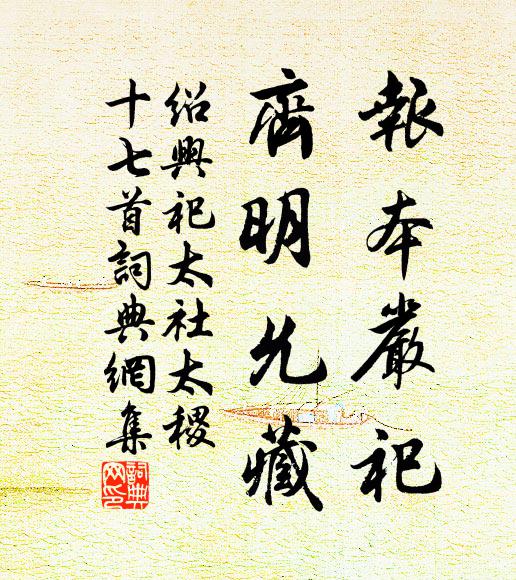 報本嚴祀
齊明允藏
紹興祀太社太稷
十七首詞典網集
詞典
网印